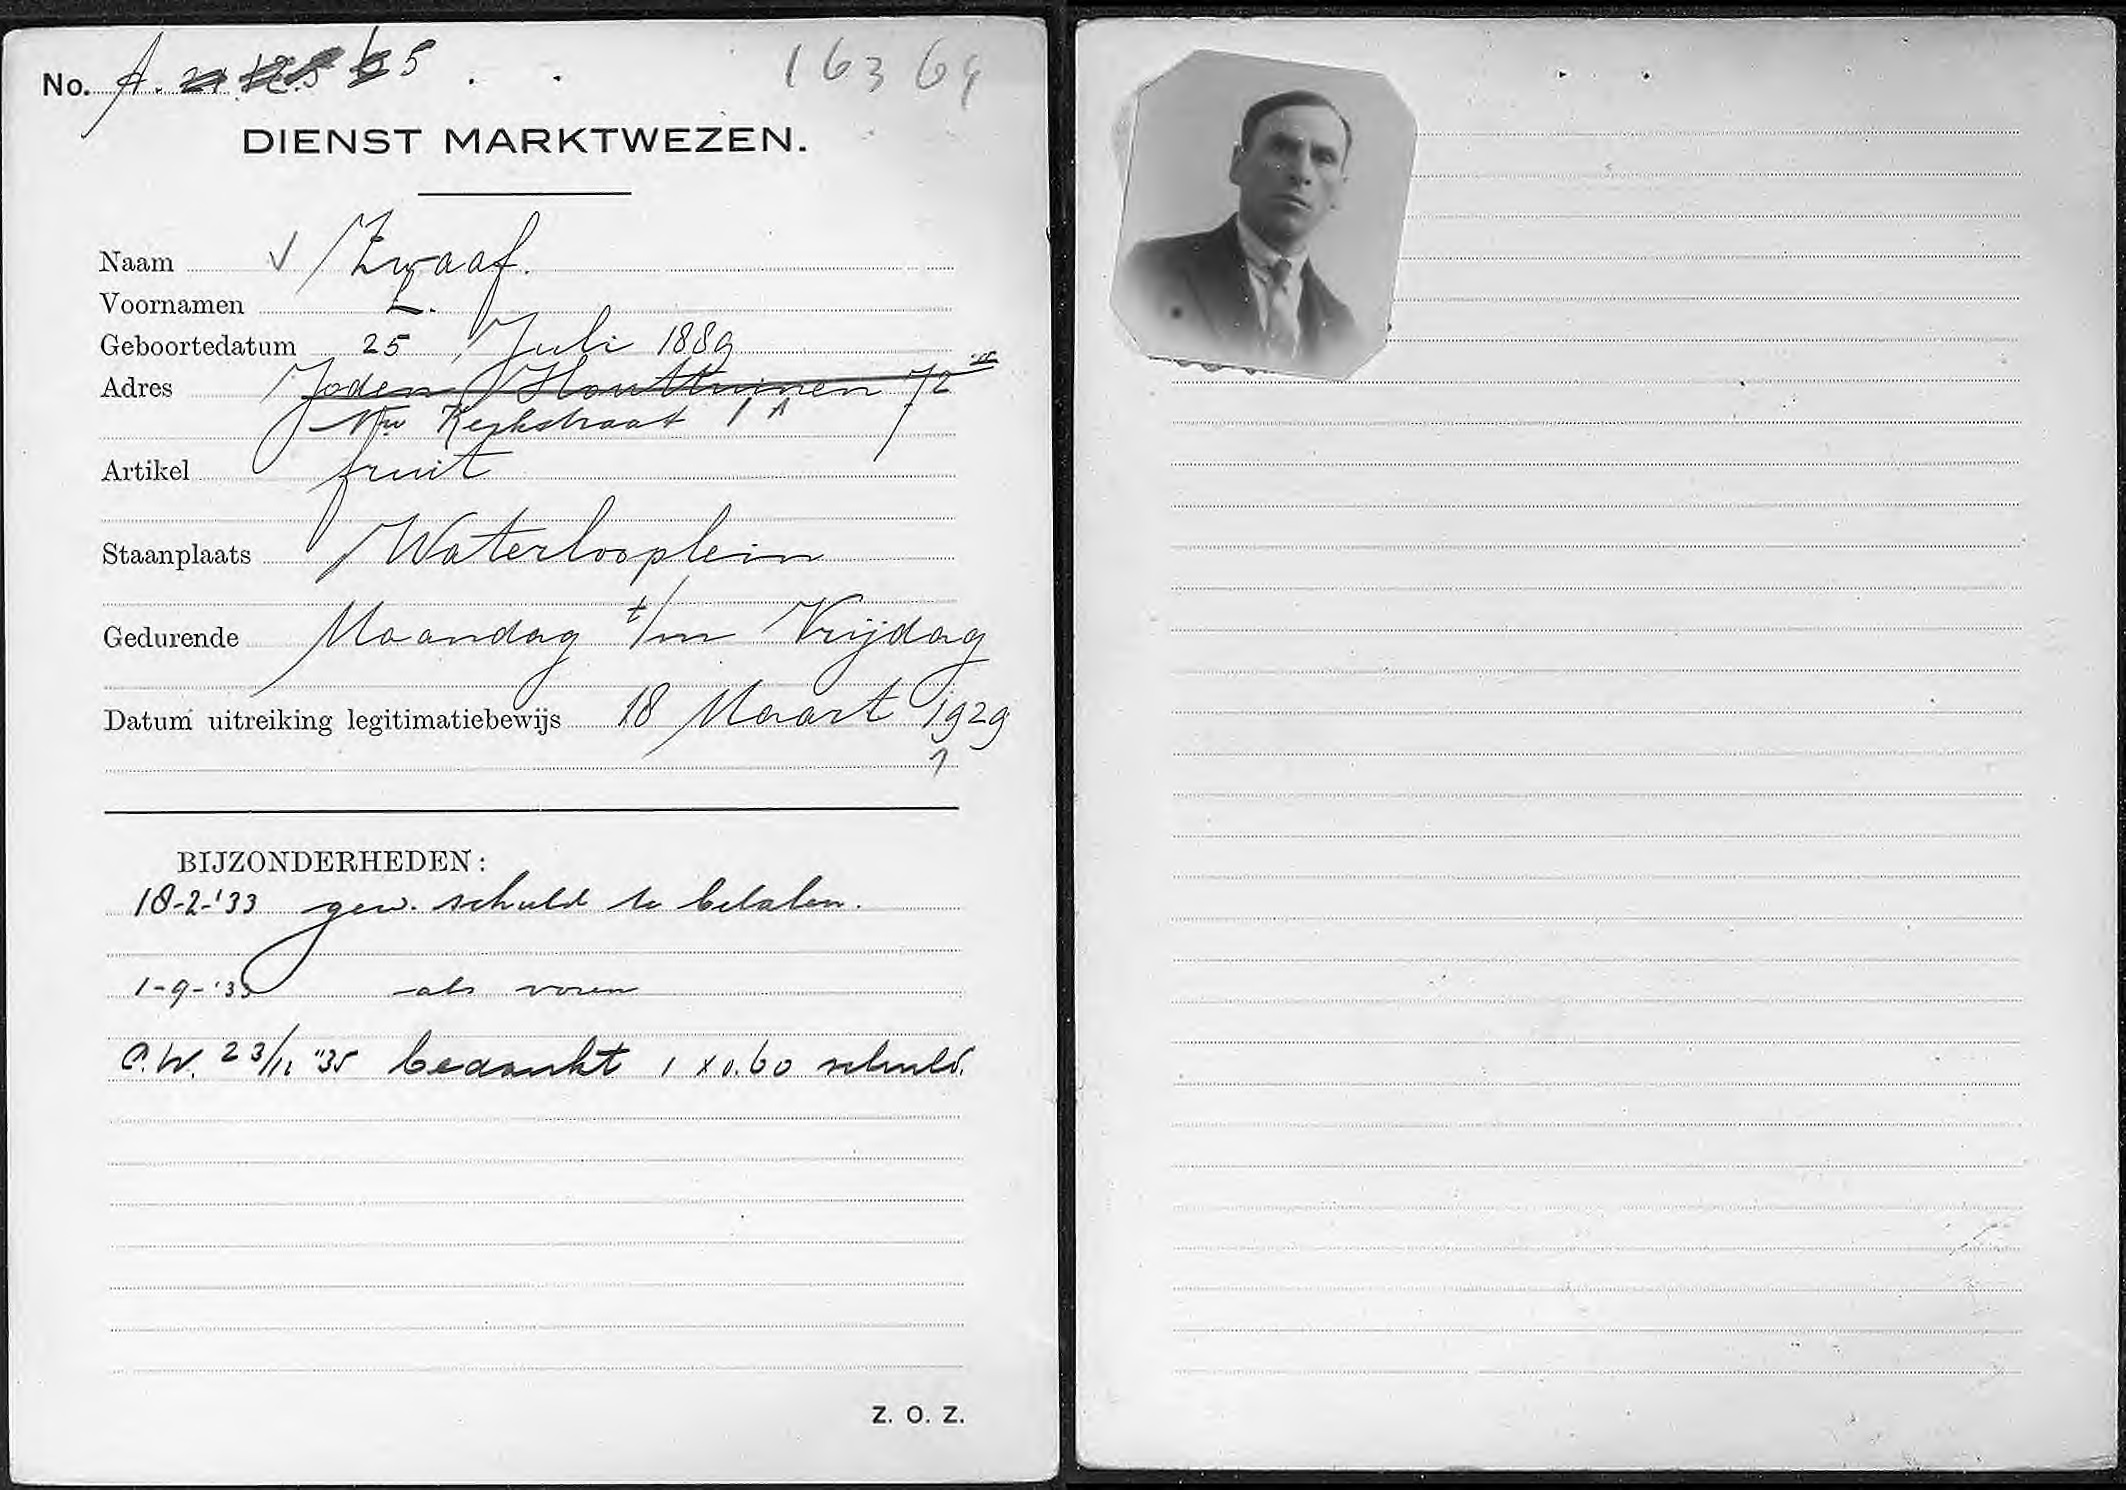 No. A. 5
16364
DIENST MARKTWEZEN.
Naam Zwaaf.
Voornamen L.
Geboortedatum 25 Juli 1889
Adres Joden Houttuinen 72
Nw Kerkstraat 1 A
Artikel fruit
Staanplaats Waterlooplein
Gedurende Maandag t/m Vrijdag
Datum uitreiking legitimatiebewijs 18 Maart 1929
BIJZONDERHEDEN:
18-2-'33 gew. schuld te betalen.
1-9-'33 als voren
C.W. 23/11 '35 bedankt 1 x 0.60 schuld.
Z. O. Z.